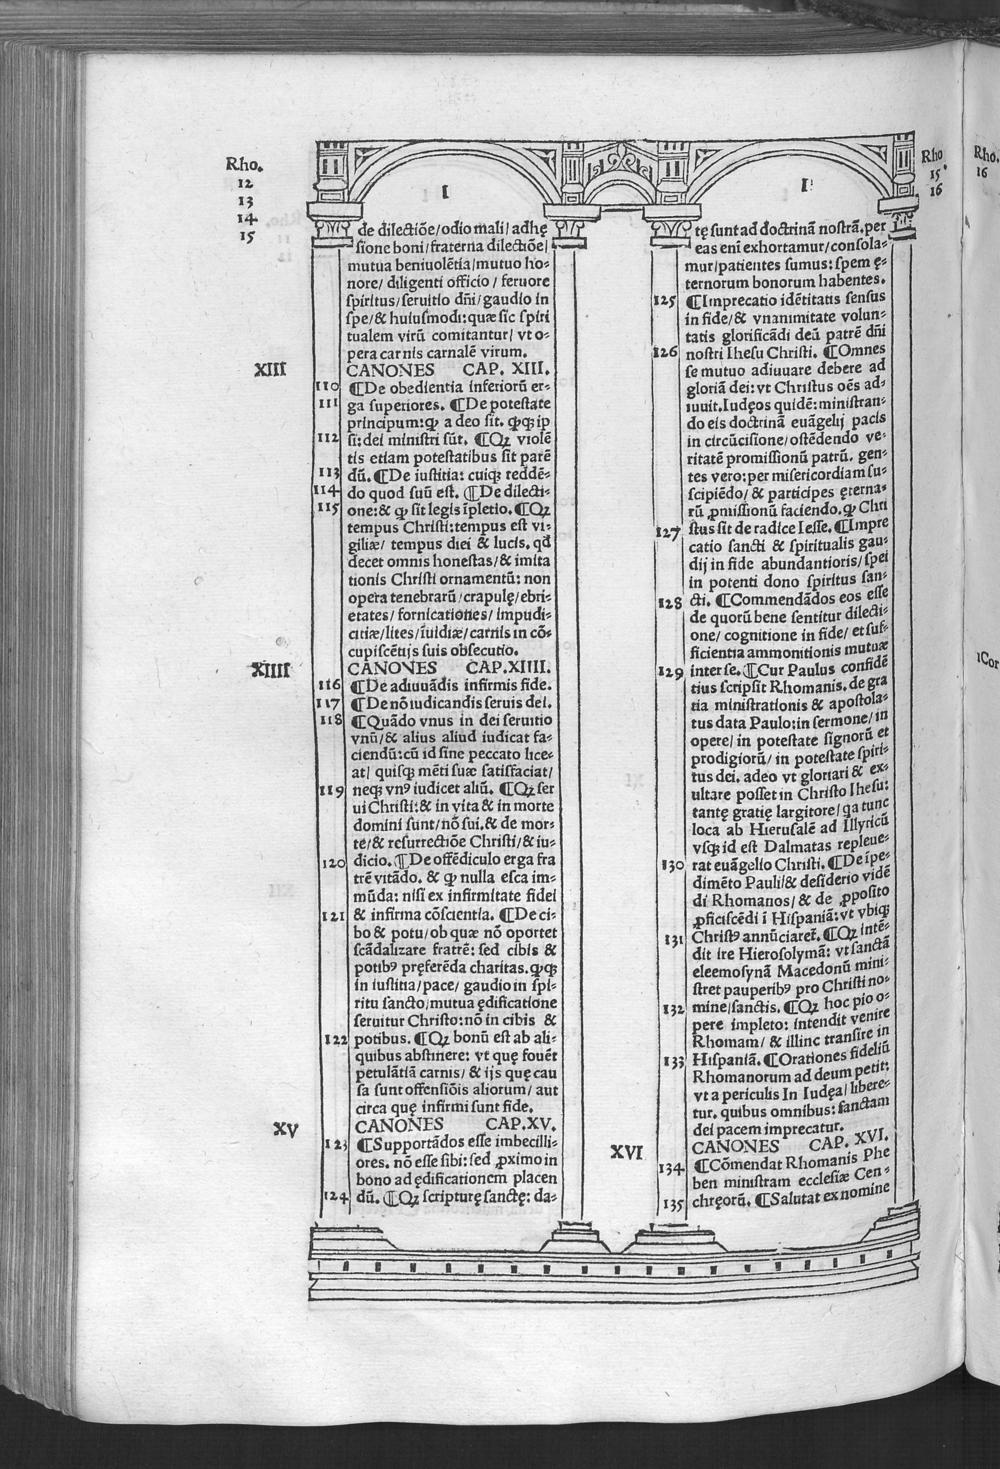 Rho.
12
13
14
15
I
de dilectiõe/odio mali/adhę
sione boni/fraterna dilectiõe/
mutua beniuolẽtia/mutuo ho-
nore/ diligenti officio / feruore
spiritus/seruitio dñi/gaudio in
spe/& huiusmodi:quæ sic spiri
tualem virũ comitantur/ vt o-
pera carnis carnalẽ virum.
XIII CANONES CAP. XIII.
110 ¶De obedientia inferiorũ er-
111 ga superiores. ¶De potestate
principum:ꝙ a deo sit. ꝙꝗ ip
112 si:dei ministri sũt. ¶Qꝫ violẽ
tis etiam potestatibus sit parẽ
113 dũ. ¶De iustitia: cuiꝗ reddẽ-
114 do quod suũ est. ¶De dilecti-
115 one:& ꝙ sit legis ĩpletio. ¶Qꝫ
tempus Christi:tempus est vi-
giliæ/ tempus diei & lucis. qđ
decet omnis honestas/& imita
tionis Christi ornamentũ: non
opera tenebrarũ/crapulę/ebri-
etates/ fornicationes/ impudi-
citiæ/lites/ĩuidiæ/carnis in cõ-
cupiscẽtijs suis obsecutio.
XIIII CANONES CAP.XIIII.
116 ¶De adiuuãdis infirmis fide.
117 ¶De nõ iudicandis seruis dei.
118 ¶Quãdo vnus in dei seruitio
vnũ/& alius aliud iudicat fa-
ciendũ:cũ id sine peccato lice-
at/ quisꝗ mẽti suæ satisfaciat/
119 neꝗ vnꝰ iudicet aliũ. ¶Qꝫ ser
ui Christi:& in vita & in morte
domini sunt/nõ sui.& de mor-
te/& resurrectiõe Christi/& iu-
120 dicio. ¶De offẽdiculo erga fra
trẽ vitãdo. & ꝙ nulla esca im-
mũda: nisi ex infirmitate fidei
121 & infirma cõscientia. ¶De ci-
bo & potu/ob quæ nõ oportet
scãdalizare fratrẽ: sed cibis &
potibꝰ pręferẽda charitas.ꝙꝗ
in iustitia/pace/ gaudio in spi-
ritu sancto/mutua ędificatione
seruitur Christo:nõ in cibis &
122 potibus. ¶Qꝫ bonũ est ab ali-
quibus abstinere: vt quę fouẽt
petulãtiã carnis/& ijs quę cau
sa sunt offensiõis aliorum/ aut
circa quę infirmi sunt fide.
XV CANONES CAP.XV.
123 ¶Supportãdos esse imbecilli-
ores. nõ esse sibi: sed ꝓximo in
bono ad ędificationem placen
124 dũ. ¶Qꝫ scripturę sanctę: da-
Rho
15
16
I
tę sunt ad doctrinã nostrã.per
eas enĩ exhortamur/consola-
mur/patientes sumus: spem ę-
ternorum bonorum habentes.
125 ¶Imprecatio idẽtitatis sensus
in fide/& vnanimitate volun-
tatis glorificãdi deũ patrẽ dñi
126 nostri Ihesu Christi. ¶Omnes
se mutuo adiuuare debere ad
gloriã dei: vt Christus oẽs ad-
iuuit.Iudęos quidẽ: ministran-
do eis doctrinã euãgelij pacis
in circũcisione/ostẽdendo ve-
ritatẽ promissionũ patrũ. gen-
tes vero: per misericordiam su-
scipiẽdo/& participes ęterna-
rũ ꝓmissionũ faciendo. ꝙ Chri
127 stus sit de radice Iesse. ¶Impre
catio sancti & spiritualis gau-
dij in fide abundantioris/ spei
in potenti dono spiritus san-
128 cti. ¶Commendãdos eos esse
de quorũ bene sentitur dilecti-
one/ cognitione in fide/ et suf-
ficientia ammonitionis mutuæ
129 inter se. ¶Cur Paulus confidẽ
tius scripsit Rhomanis. de gra
tia ministrationis & apostola-
tus data Paulo: in sermone/in
opere/ in potestate signorũ et
prodigiorũ/ in potestate spiri-
tus dei. adeo vt gloriari & ex-
ultare posset in Christo Ihesu:
tantę gratię largitore/ qa tunc
loca ab Hierusalẽ ad Illyricũ
vsꝗ id est Dalmatas repleue-
130 rat euãgelio Christi. ¶De ĩpe-
dimẽto Pauli/& desiderio vidẽ
di Rhomanos/ & de ꝓposito
ꝓficiscẽdi ĩ Hispaniã: vt vbiꝗ
131 Christꝰ annũciaret̃. ¶Qꝫ intẽ-
dit ire Hierosolymã: vt sanctã
eleemosynã Macedonũ mini-
stret pauperibꝰ pro Christi no-
132 mine/sanctis. ¶Qꝫ hoc pio o-
pere impleto: intendit venire
Rhomam/ & illinc transire in
133 Hispaniã. ¶Orationes fideliũ
Rhomanorum ad deum petit:
vt a periculis In Iudęa/ libere-
tur. quibus omnibus: sanctam
dei pacem imprecatur.
XVI CANONES CAP. XVI.
134 ¶Cõmendat Rhomanis Phe
ben ministram ecclesiæ Cen-
135 chręorũ. ¶Salutat ex nomine
Rho.
16
1Cor